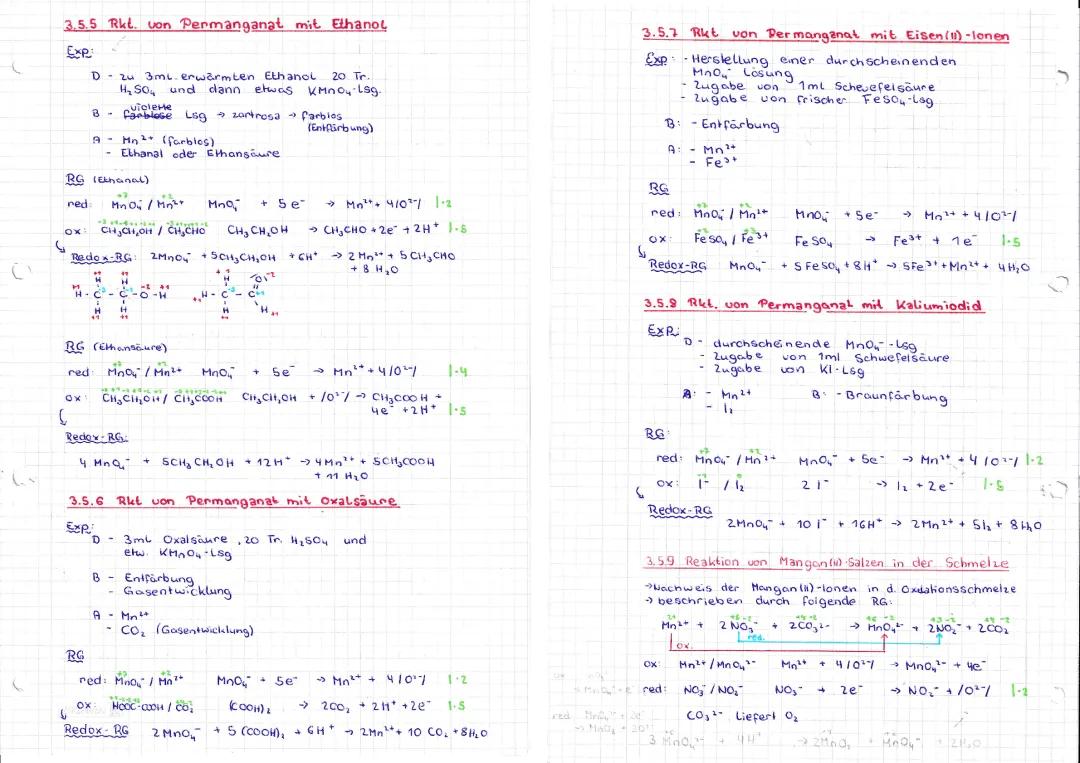 3.5.5 Rkt. von Permanganat mit Ethanol
Exp:
D - zu 3mL erwärmten Ethanol 20 Tr.
H₂SO₄ und dann etwas KMnO₄-Lsg.
B - violette Lsg → zartrosa → farblos
(Entfärbung)
A - Mn²⁺ (farblos)
- Ethanal oder Ethansäure
RG (Ethanal)
+7 +2
red: MnO₄⁻ / Mn²⁺ MnO₄⁻ + 5e⁻ → Mn²⁺ + 4/O²⁻/ |·2
ox: CH₃CH₂OH / CH₃CHO CH₃CH₂OH → CH₃CHO + 2e⁻ + 2H⁺ |·5
Redox-RG: 2MnO₄⁻ + 5CH₃CH₂OH + 6H⁺ → 2Mn²⁺ + 5CH₃CHO
+ 8 H₂O
H H H O
H - C - C - O - H H - C - C
H H H H
RG (Ethansäure)
+7 +2
red: MnO₄⁻ / Mn²⁺ MnO₄⁻ + 5e⁻ → Mn²⁺ + 4/O²⁻/ |·4
ox: CH₃CH₂OH / CH₃COOH CH₃CH₂OH + /O²⁻/ → CH₃COOH +
4e⁻ + 2H⁺ |·5
Redox-RG:
4 MnO₄⁻ + 5CH₃CH₂OH + 12H⁺ → 4Mn²⁺ + 5CH₃COOH
+ 11 H₂O
3.5.6 Rkt von Permanganat mit Oxalsäure
Exp:
D - 3mL Oxalsäure, 20 Tr. H₂SO₄ und
etw. KMnO₄-Lsg
B - Entfärbung
- Gasentwicklung
A - Mn²⁺
- CO₂ (Gasentwicklung)
RG
+7 +2
red: MnO₄⁻ / Mn²⁺ MnO₄⁻ + 5e⁻ → Mn²⁺ + 4/O²⁻/ |·2
ox: HOOC-COOH / CO₂ (COOH)₂ → 2CO₂ + 2H⁺ + 2e⁻ |·5
Redox-RG 2MnO₄⁻ + 5 (COOH)₂ + 6H⁺ → 2Mn²⁺ + 10 CO₂ + 8H₂O
3.5.7 Rkt von Permanganat mit Eisen(II)-Ionen
Exp: - Herstellung einer durchscheinenden
MnO₄⁻ Lösung
- Zugabe von 1ml Schwefelsäure
- Zugabe von frischer FeSO₄-Lsg
B: - Entfärbung
A: - Mn²⁺
- Fe³⁺
RG
+7 +2
red: MnO₄⁻ / Mn²⁺ MnO₄⁻ + 5e⁻ → Mn²⁺ + 4/O²⁻/
ox: FeSO₄ / Fe³⁺ FeSO₄ → Fe³⁺ + 1e⁻ |·5
Redox-RG MnO₄⁻ + 5FeSO₄ + 8H⁺ → 5Fe³⁺ + Mn²⁺ + 4H₂O
3.5.8 Rkt. von Permanganat mit Kaliumiodid
Exp:
D - durchscheinende MnO₄⁻-Lsg
- Zugabe von 1ml Schwefelsäure
- Zugabe von KI-Lsg
A: - Mn²⁺ B: - Braunfärbung
- I₂
RG:
+7 +2
red: MnO₄⁻ / Mn²⁺ MnO₄⁻ + 5e⁻ → Mn²⁺ + 4/O²⁻/ |·2
ox: I⁻ / I₂ 2 I⁻ → I₂ + 2e⁻ |·5
Redox-RG
2MnO₄⁻ + 10 I⁻ + 16H⁺ → 2Mn²⁺ + 5I₂ + 8H₂O
3.5.9 Reaktion von Mangan(II)-Salzen in der Schmelze
→ Nachweis der Mangan(II)-Ionen in d. Oxidationsschmelze
→ beschrieben durch folgende RG:
Mn²⁺ + 2NO₃⁻ + 2CO₃²⁻ → MnO₄²⁻ + 2NO₂⁻ + 2CO₂
red.
ox.
ox: Mn²⁺/MnO₄²⁻ Mn²⁺ + 4/O²⁻/ → MnO₄²⁻ + 4e⁻
red: NO₃⁻/NO₂⁻ NO₃⁻ + 2e⁻ → NO₂⁻ + /O²⁻/ |·2
CO₃²⁻ Liefert O₂
3 MnO₄²⁻ + 4H⁺ → 2MnO₄⁻ + MnO₂ + 2H₂O